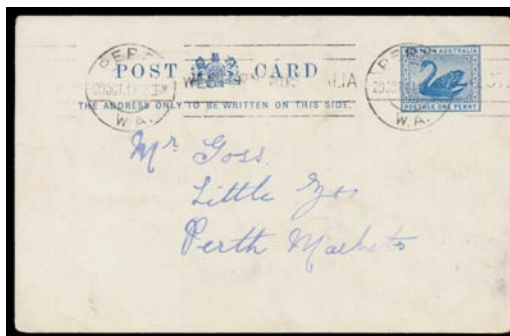 POST CARD
THE ADDRESS ONLY TO BE WRITTEN ON THIS SIDE.
PERTH
W.A.
PERTH
W.A.
AUSTRALIA
POSTAGE ONE PENNY
Mr Goss
Little Zoo
Perth Markets